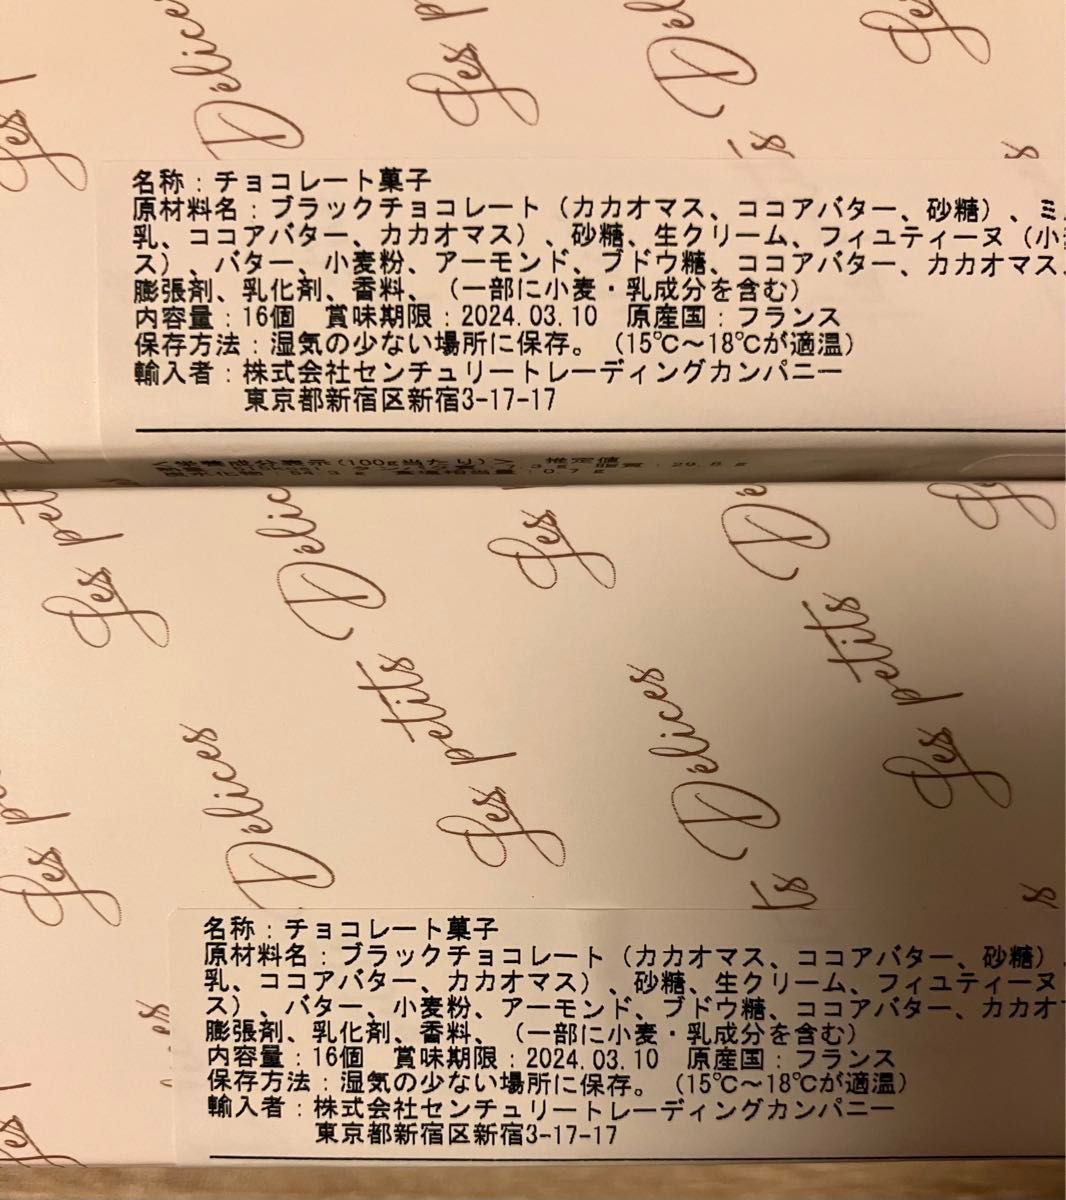 Delices
Les
Delices
Les
Les p
ts
s
名称：チョコレート菓子
原材料名：ブラックチョコレート（カカオマス、ココアバター、砂糖）、ミ
乳、ココアバター、カカオマス）、砂糖、生クリーム、フィユティーヌ（小
ス）、バター、小麦粉、アーモンド、ブドウ糖、ココアバター、カカオマス、
膨張剤、乳化剤、香料、（一部に小麦・乳成分を含む）
内容量：16個　賞味期限：2024.03.10　原産国：フランス
保存方法：湿気の少ない場所に保存。（15℃〜18℃が適温）
輸入者：株式会社センチュリートレーディングカンパニー
東京都新宿区新宿3-17-17
<栄養成分表示(100g当たり)>　推定値
脂質：29.8g
Les peti
Delices
Les petits
Delices
Les petits
Les p
Delices
Les petits
Delices
ts
s
es
名称：チョコレート菓子
原材料名：ブラックチョコレート（カカオマス、ココアバター、砂糖）、
乳、ココアバター、カカオマス）、砂糖、生クリーム、フィユティーヌ
ス）、バター、小麦粉、アーモンド、ブドウ糖、ココアバター、カカオ
膨張剤、乳化剤、香料、（一部に小麦・乳成分を含む）
内容量：16個　賞味期限：2024.03.10　原産国：フランス
保存方法：湿気の少ない場所に保存。（15℃〜18℃が適温）
輸入者：株式会社センチュリートレーディングカンパニー
東京都新宿区新宿3-17-17